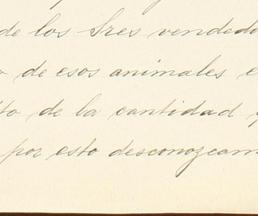 de los Sres vended
de esos animales e
to de la cantidad y
por esto desconozcam